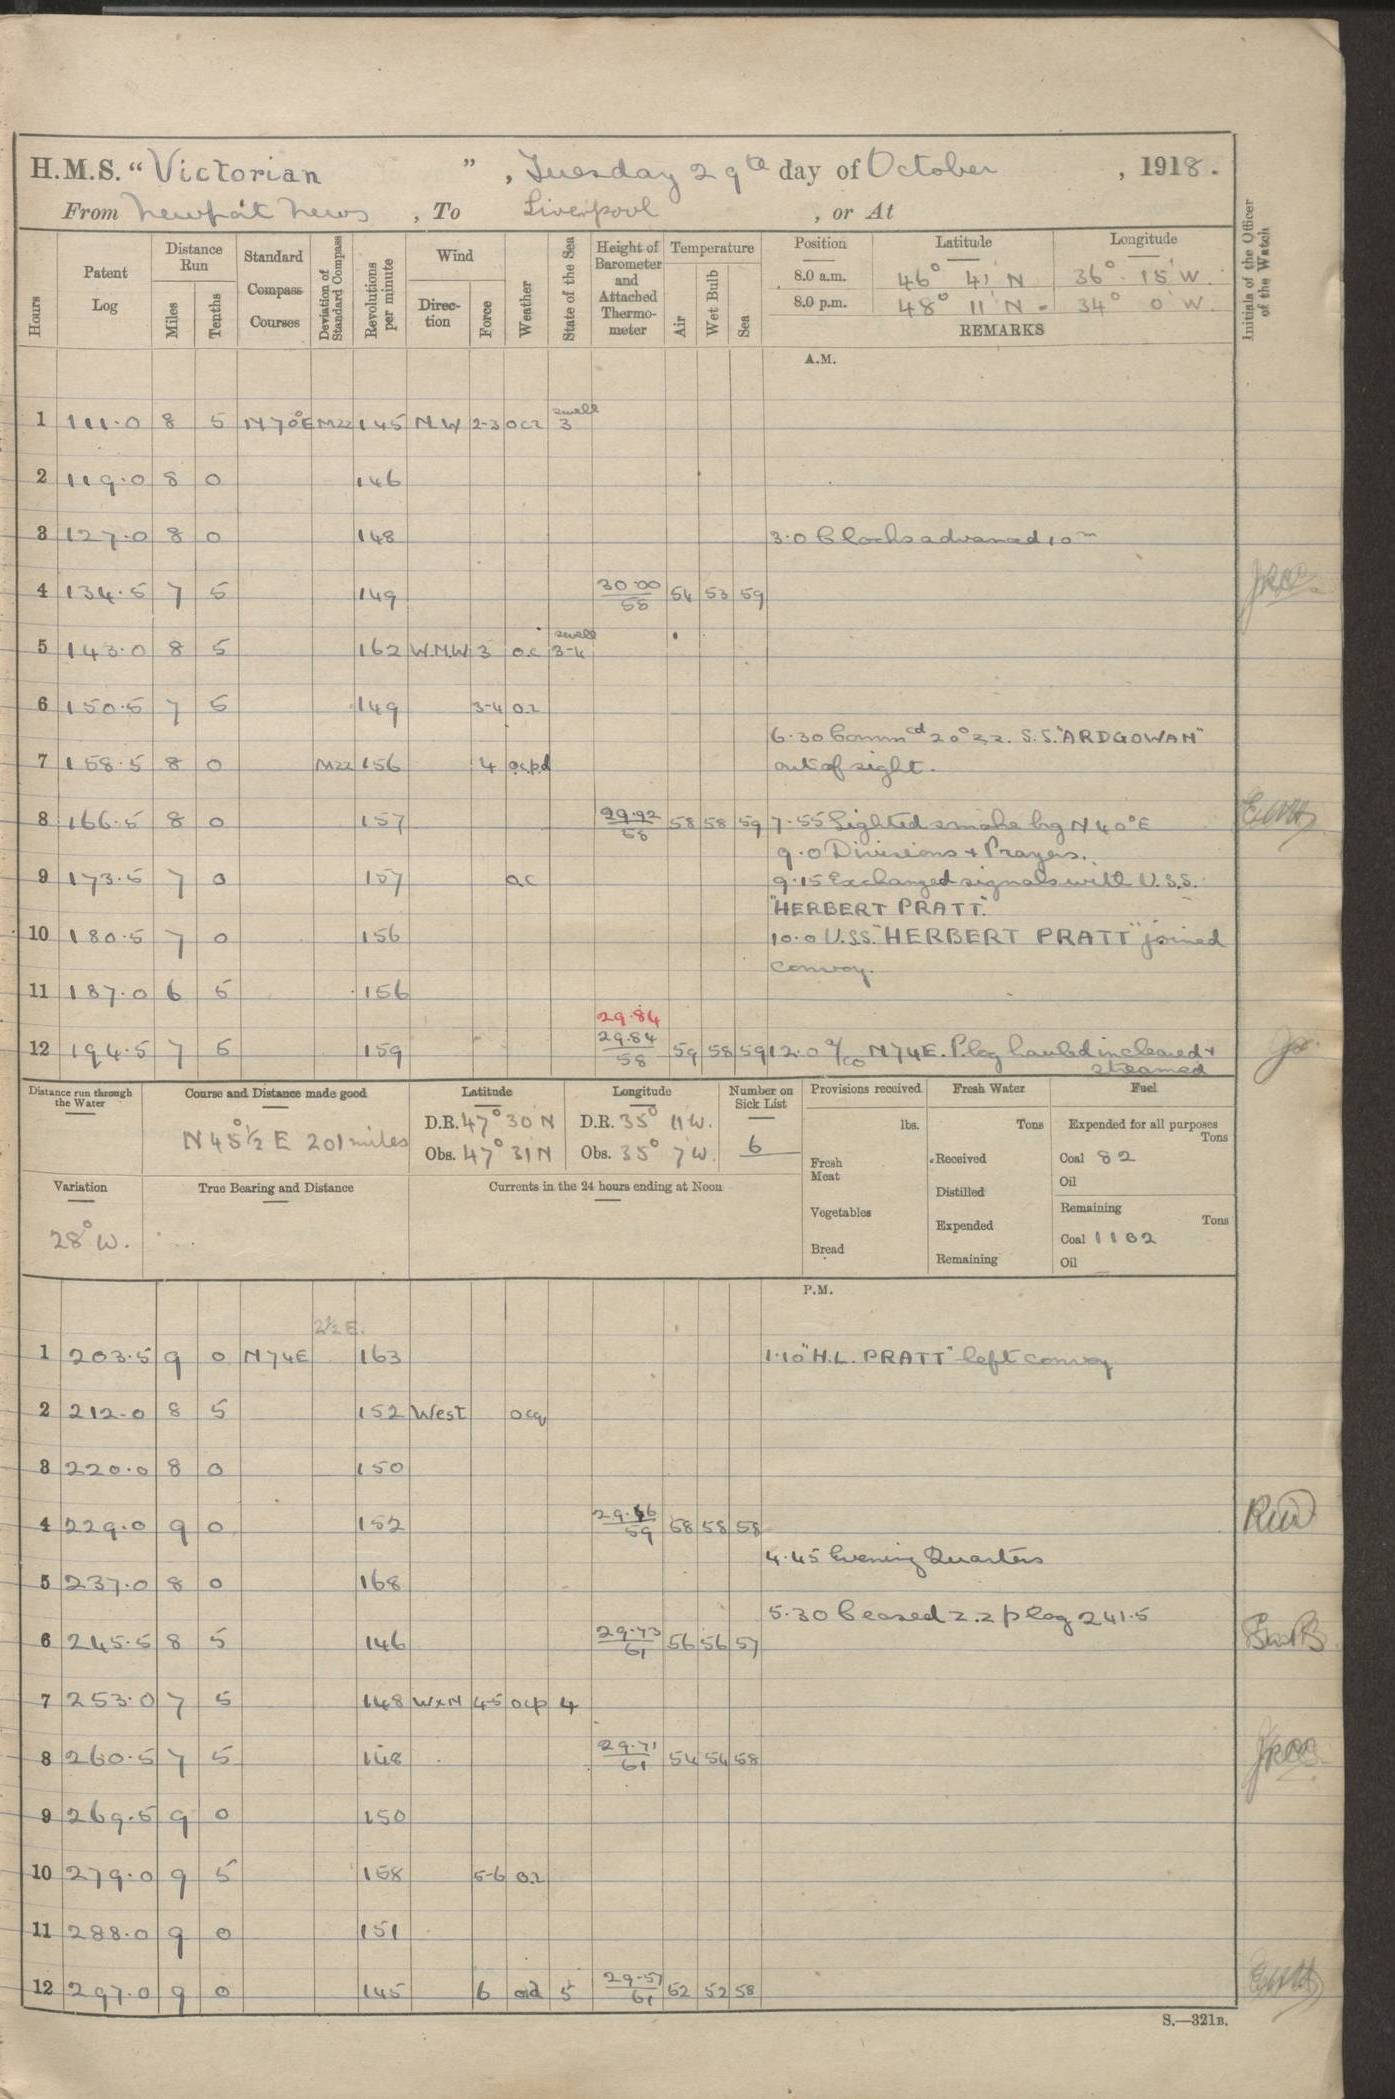 H.M.S. "Victorian", Tuesday 29th day of October, 1918.
From Newport News, To Liverpool, or At
Hours
Patent Log
Distance Run
Miles
Tenths
Standard Compass Courses
Deviation of Standard Compass
Revolutions per minute
Wind
Direction
Force
Weather
State of the Sea
Height of Barometer and Attached Thermometer
Temperature
Air
Wet Bulb
Sea
Position Latitude Longitude
8.0 a.m. 46° 41' N 36° 15' W.
8.0 p.m. 48° 11' N - 34° 0' W.
REMARKS
Initials of the Officer of the Watch
A.M.
1 111.0 8 5 N70°E 145 N.W 2-3 swell 3
2 119.0 8 0 146
3 127.0 8 0 148 3.0 Clocks advanced 10m
4 134.5 7 5 149 30.00/58 54 53 59
5 143.0 8 5 162 W.N.W 3 o.c swell 3-4
6 150.5 7 5 149 3-4
6.30 Commcd 20° z.z. S.S. "ARDGOWAN"
7 158.5 8 0 156 4 ocpd out of sight.
8 166.5 8 0 157 29.92/58 58 58 59 7.55 Sighted smoke brg N40°E
9.0 Divisions + Prayers.
9 173.5 7 0 157 oc 9.15 Exchanged signals with U.S.S.
"HERBERT PRATT."
10 180.5 7 0 156 10.0 U.SS. "HERBERT PRATT" joined
convoy.
11 187.0 6 5 156
29.84
12 194.5 7 5 159 29.84/58 59 58 59 12.0 a/co N74E. P.log hauled in cleared +
streamed
Distance run through the Water
Course and Distance made good
N45°½ E 201 miles
Latitude
D.R. 47° 30 N
Obs. 47° 31 N
Longitude
D.R. 35° 11 W.
Obs. 35° 7 W.
Number on Sick List
6
Provisions received
lbs.
Fresh Meat
Vegetables
Bread
Fresh Water
Tons
Received
Distilled
Expended
Remaining
Fuel
Expended for all purposes
Tons
Coal 82
Oil
Remaining
Tons
Coal 1102
Oil
Variation
28° W.
True Bearing and Distance
Currents in the 24 hours ending at Noon
P.M.
2½ E.
1 203.5 9 0 N74E 163 1.10 "H.L. PRATT" left convoy
2 212.0 8 5 152 West ocq
3 220.0 8 0 150
4 229.0 9 0 152 59 58 58 58
4.45 Evening Quarters
5 237.0 8 0 168
5.30 Ceased z.z p log 241.5
6 245.5 8 5 146 29.73/61 56 56 57
7 253.0 7 5 148 WxN 4-5 ocp 4
8 260.5 7 5 148 29.71/61 54 54 58
9 269.5 9 0 150
10 279.0 9 5 158 5-6
11 288.0 9 0 151
12 297.0 9 0 145 6 5 29.57/61 52 52 58
S.—321B.